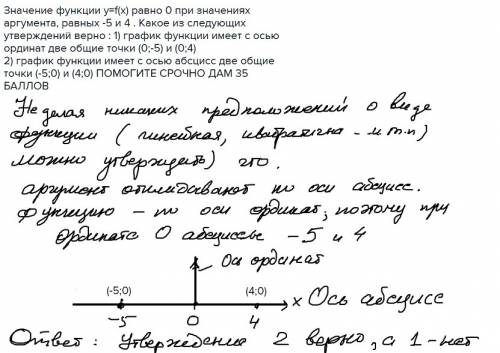 Значение функции y=f(x) равно 0 при значениях
аргумента, равных -5 и 4 . Какое из следующих
утверждений верно : 1) график функции имеет с осью
ординат две общие точки (0;-5) и (0;4)
2) график функции имеет с осью абсцисс две общие
точки (-5;0) и (4;0) ПОМОГИТЕ СРОЧНО ДАМ 35
БАЛЛОВ
Не делая никаких предположений о виде
функции (линейная, квадратична - и т.п)
можно утверждать, что.
аргумент откладывают по оси абсцисс.
Функцию - по оси ординат, поэтому при
ординате 0 абсциссы -5 и 4
Ось ординат
(-5;0) (4;0)
x Ось абсцисс
-5 0 4
Ответ: Утверждение 2 верно, а 1-нет